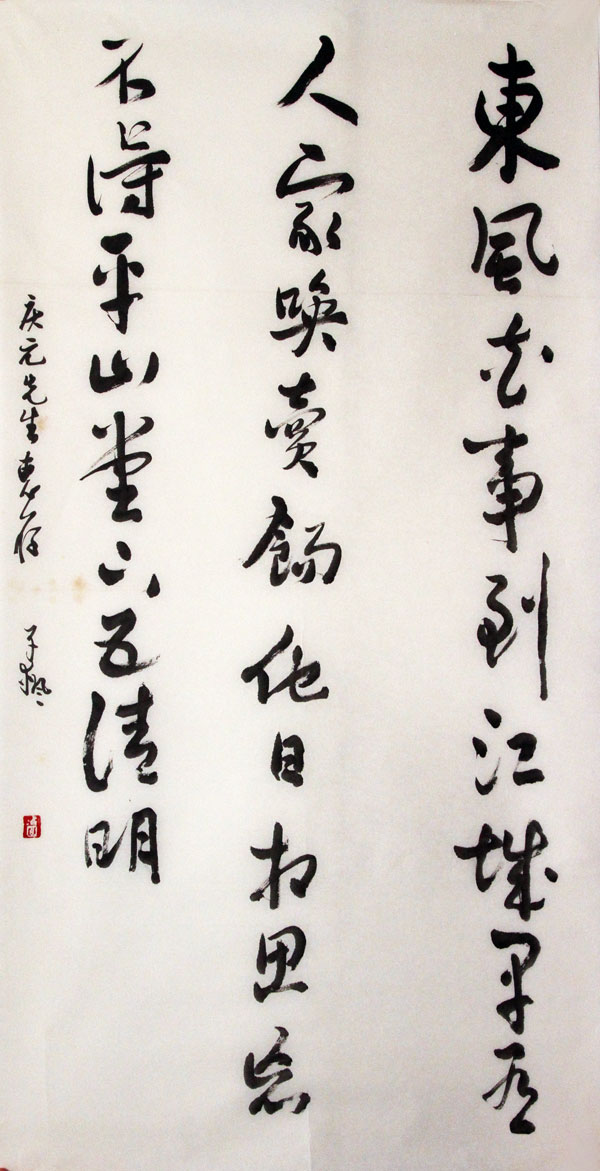 東風花事到江城早有
人家喚賣餳他日相思忘
不得平山堂下五清明
庆元先生惠存 子楓